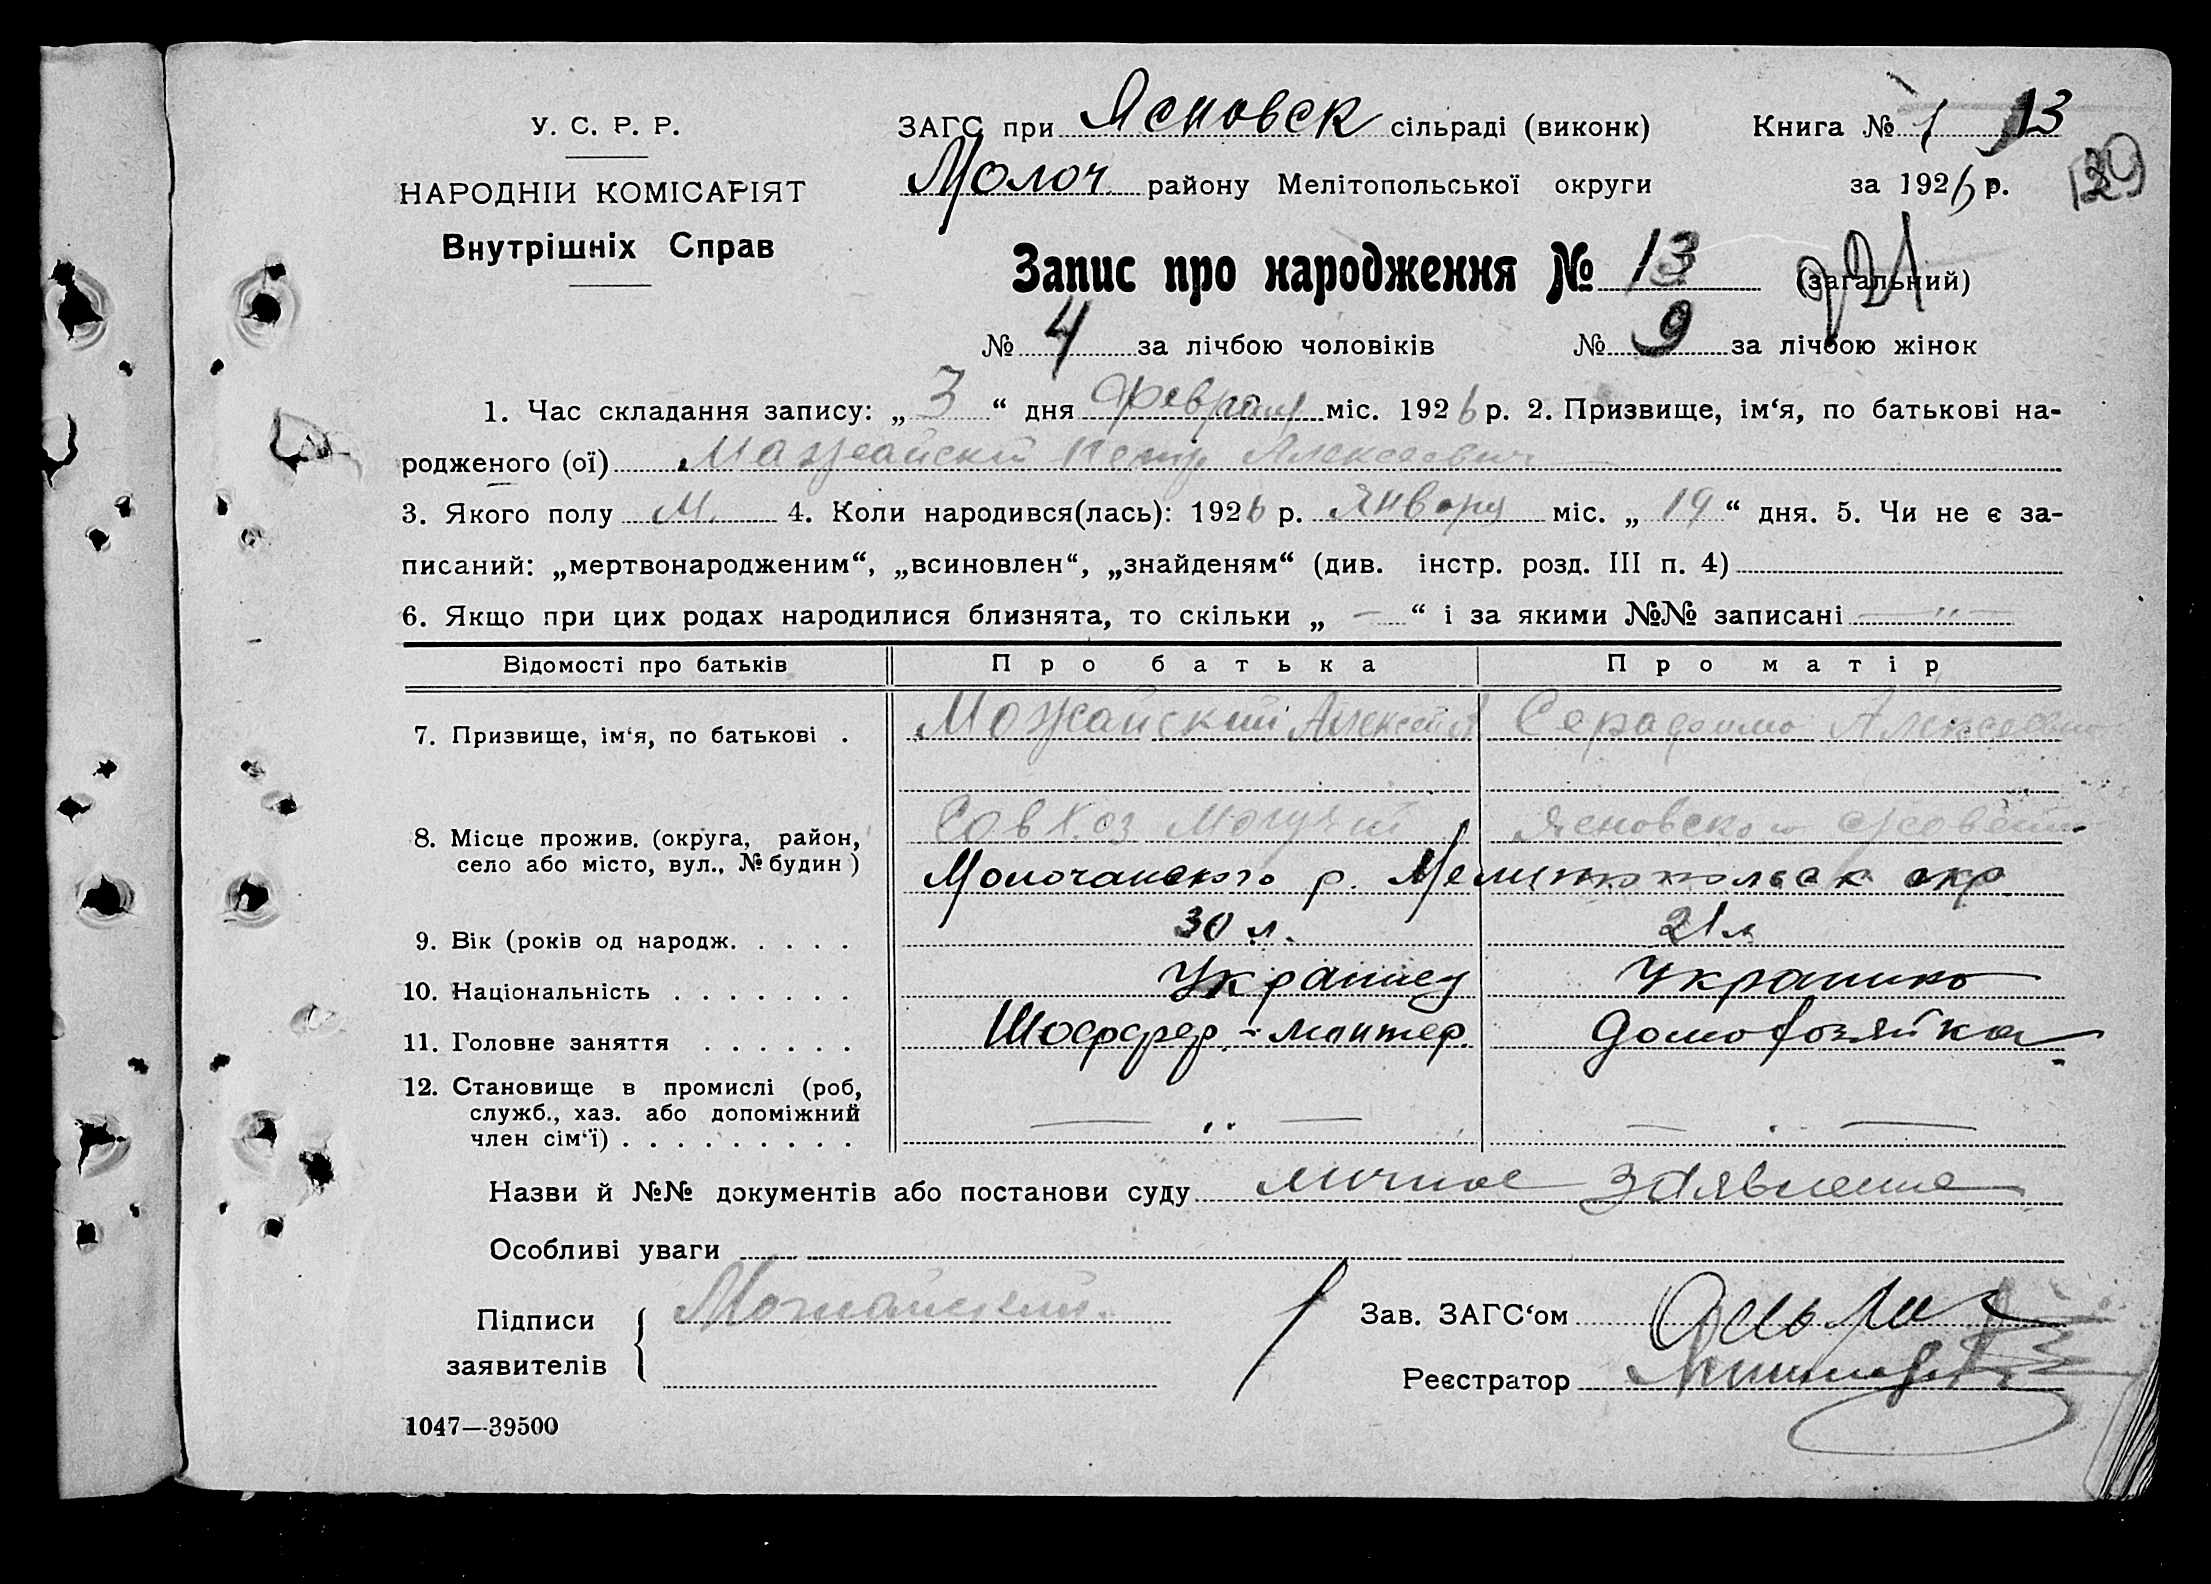 У. С. Р. Р.
НАРОДНІЙ КОМІСАРІЯТ
Внутрішніх Справ
ЗАГС при Ясновск сільраді (виконк) Книга № 1 13
Молоч. району Мелітопольської округи за 1926 р.
Запис про народження № 13 (загальний)
№ 4 за лічбою чоловіків № 9 за лічбою жінок
1. Час складання запису: „ 3 “ дня февраля міс. 1926 р. 2. Призвище, ім‘я, по батькові на-
родженого (ої) Мажайский Петр Алексеевич
3. Якого полу М. 4. Коли народився(лась): 1926 р. Января міс. „ 19 “ дня. 5. Чи не є за-
писаний: „мертвонародженим“, „всиновлен“, „знайденям“ (див. інстр. розд. III п. 4)
6. Якщо при цих родах народилися близнята, то скільки „ — “ і за якими №№ записані — " —
Відомості про батьків Про батька Про матір
7. Призвище, ім‘я, по батькові . Можайский Алексей
8. Місце прожив. (округа, район, Совхоз Могучий Ясновского
село або місто, вул., № будин) Молочанского р. Мелитопольск окр
9. Вік (років од народж. . . . . 30 л. 21 л
10. Національність . . . . . . . Украинец Украинка
11. Головне заняття . . . . . . Шоффер-монтер. домохозяйка
12. Становище в промислі (роб,
служб., хаз. або допоміжний
член сім‘ї) . . . . . . . . . — „ — — „ —
Назви й №№ документів або постанови суду личное заявление
Особливі уваги
Підписи Можайский.
заявителів
Зав. ЗАГС‘ом
Реєстратор
1047—39500